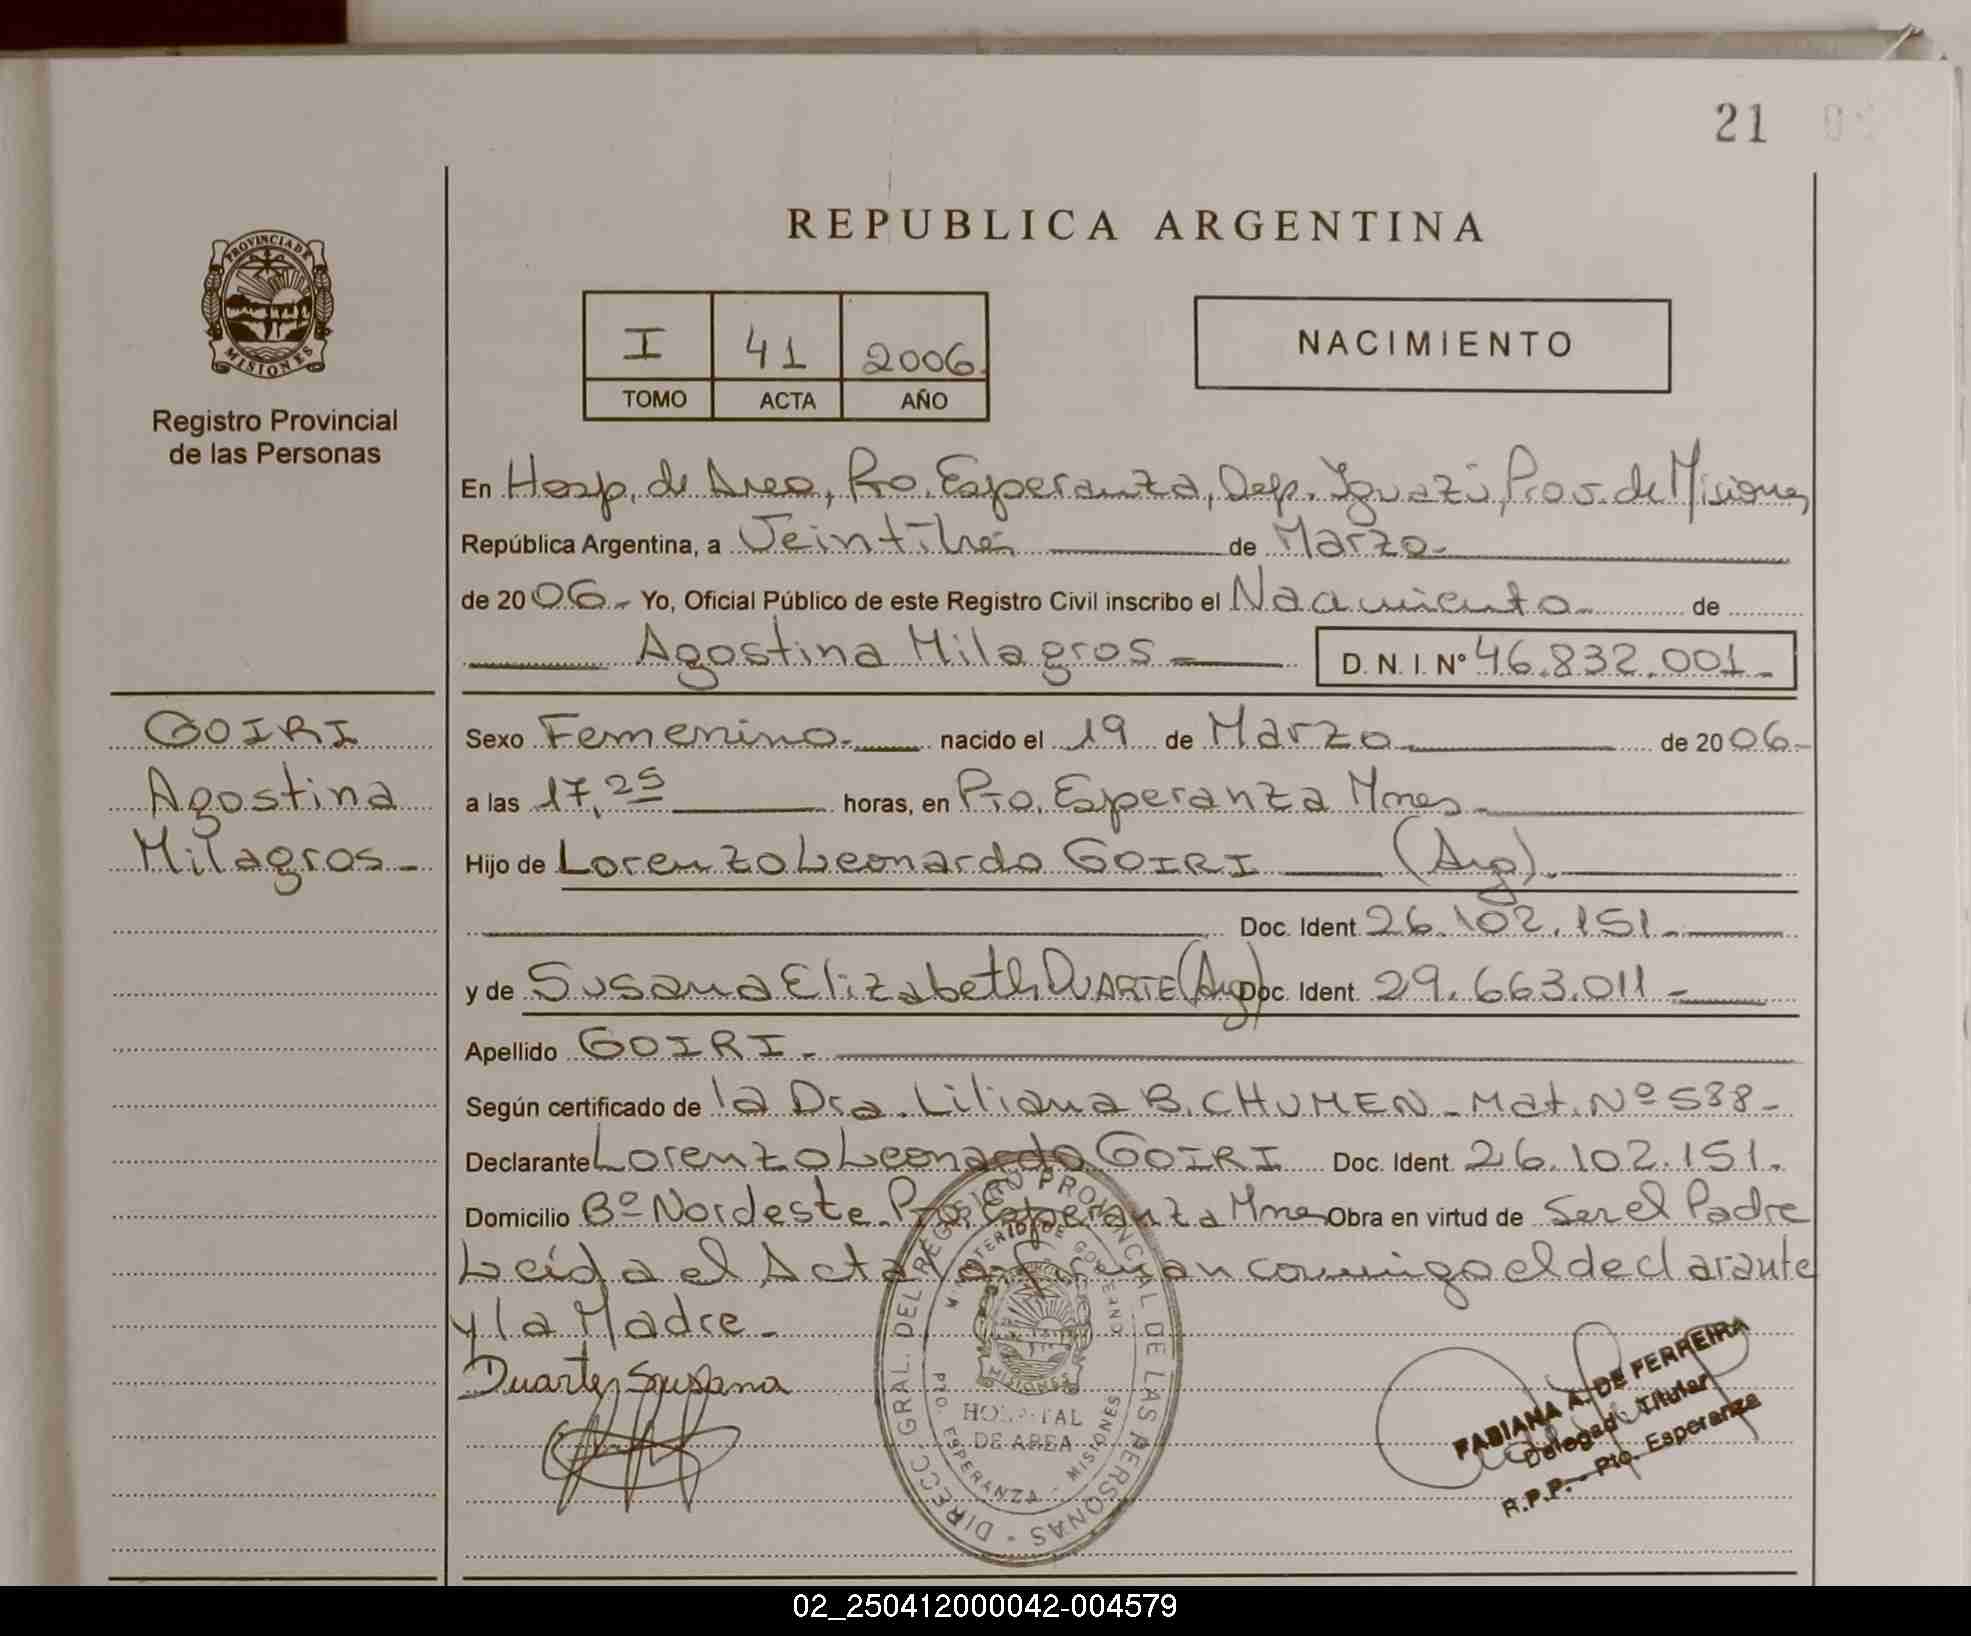 21
REPUBLICA ARGENTINA
PROVINCIA DE
MISIONES
Registro Provincial
de las Personas
I 41 2006.
TOMO ACTA AÑO
NACIMIENTO
En Hosp. de Area, Pto. Esperanza, Dep. Iguazú, Prov. de Misiones
República Argentina, a Veintitrés de Marzo.
de 2006.- Yo, Oficial Público de este Registro Civil inscribo el Nacimiento de
Agostina Milagros D. N. I. Nº 46.832.001.-
GOIRI
Agostina
Milagros.-
Sexo Femenino. nacido el 19 de Marzo de 2006.-
a las 17,25 horas, en Pto. Esperanza Mnes.
Hijo de Lorenzo Leonardo GOIRI (Arg).
Doc. Ident. 26.102.151.-
y de Susana Elizabeth DUARTE (Arg) Doc. Ident. 29.663.011.-
Apellido GOIRI.-
Según certificado de la Dra. Liliana B. CHUMEN - Mat. Nº 588-
Declarante Lorenzo Leonardo GOIRI Doc. Ident. 26.102.151.
Domicilio Bº Nordeste Pto. Esperanza Mnes Obra en virtud de Ser el Padre
Leída el Acta la firman conmigo el declarante
y la Madre.-
Duarte, Susana
DIRECC. GRAL. DEL REGISTRO PROVINCIAL DE LAS PERSONAS -
MINISTERIO DE GOBIERNO
MISIONES
HOSPITAL
DE AREA
PTO. ESPERANZA - MISIONES
FABIANA A. DE FERREIRA
Delegada Titular
R.P.P. - Pto. Esperanza
02_250412000042-004579